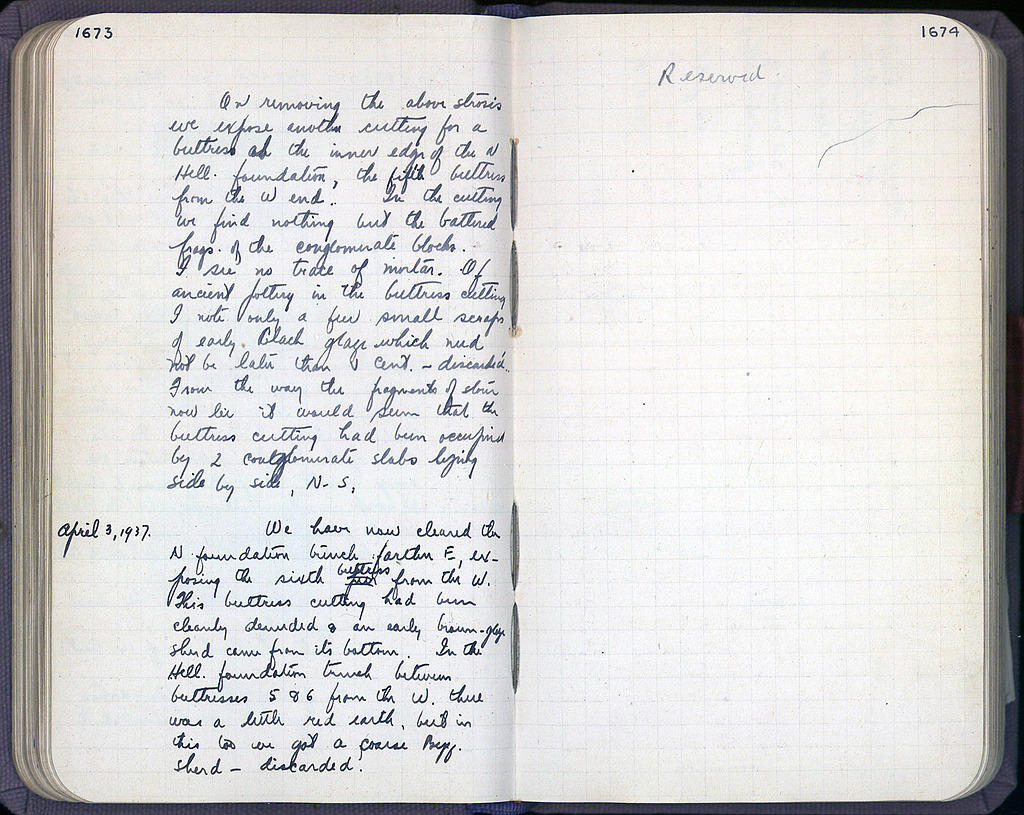 1673
On removing the above strosis
we expose another cutting for a
buttress at the inner edge of the N
Hell. foundation, the fifth buttress
from the W end. In the cutting
we find nothing but the battered
frags. of the conglomerate blocks.
I see no trace of mortar. Of
ancient pottery in the buttress cutting
I note only a few small scraps
of early black glaze which need
not be later than V cent. - discarded.
From the way the fragments of stone
now lie it would seem that the
buttress cutting had been occupied
by 2 conglomerate slabs lying
side by side, N-S.
April 3, 1937. We have now cleared the
N foundation trench farther E, ex-
posing the sixth buttress from the W.
This buttress cutting had been
cleanly denuded & an early brown-glaze
sherd came from its bottom. In the
Hell. foundation trench between
buttresses 5 & 6 from the W. there
was a little red earth, but in
this too we got a coarse Byz.
sherd - discarded.
1674
Reserved